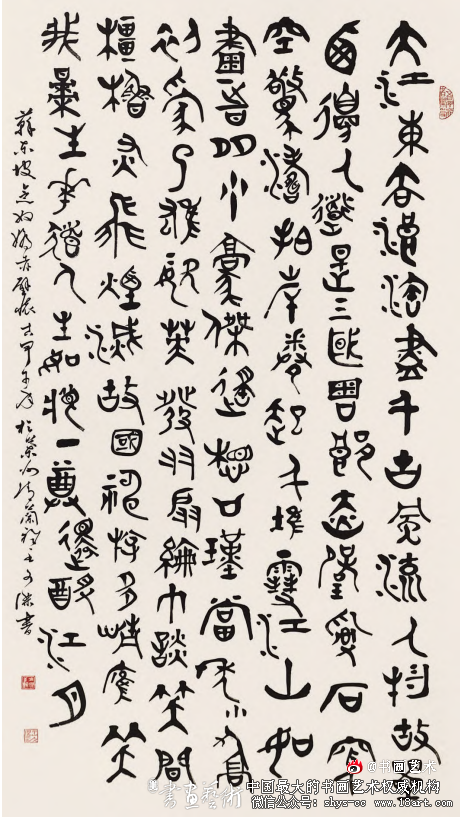 大江東去浪淘盡千古風流人物故壘
西邊人道是三國周郎赤壁亂石穿
空驚濤拍岸卷起千堆雪江山如
畫一時多少豪傑遙想公瑾當年小喬
初嫁了雄姿英發羽扇綸巾談笑間
檣櫓灰飛煙滅故國神游多情應笑
我早生華髮人生如夢一尊還酹江月
蘇東坡念奴嬌赤壁懷古甲午
書
@书画艺术
書畫藝術
中国最大的书画艺术权威机构
微信公众号：shys-cc www.18art.com